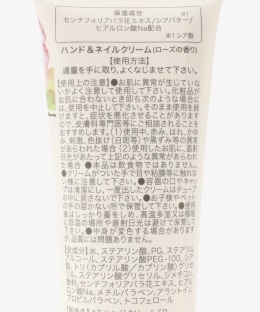 保湿成分 ※1
センチフォリアバラ花エキス/シアバター/
ヒアルロン酸Na配合
※1 シア脂
ハンド&ネイルクリーム(ローズの香り)
【使用方法】
適量を手に取り、よくなじませて下さい。
【使用上の注意】●お肌に異常が生じていな
いかよく注意して使用して下さい。化粧品が
お肌に合わないとき即ち次のような場合に
は、使用を中止して下さい。そのまま使用を続
けますと、症状を悪化させることがあります
ので、皮膚科専門医等にご相談されることを
おすすめします。(1)使用中、赤み、はれ、かゆ
み、刺激、色抜け(白斑等)や黒ずみ等の異常
があらわれた場合 (2)使用したお肌に、直射
日光があたって上記のような異常があらわれ
た場合 ●本品は飲食物ではありません。
●クリームがついた手で目や粘膜等に触れな
い様に注意して下さい。●容器の口やキャッ
プは清潔にし、一度出したクリームはチューブ
の中に戻さないで下さい。●お子様やペット
の手の届かない所に保管して下さい。●使用
後はしっかり蓋をしめ、高温多湿又は極端に
低温の場所や直射日光は避けて保管して下
さい。●中身が変色する場合があります
が、品質には問題ありません。
【全成分】水、ステアリン酸、PG、ステアリル
アルコール、ステアリン酸PEG-100、シア
脂、トリ(カプリル酸/カプリン酸)グリセリ
ル、ステアリン酸グリセリル、ジメチコン、
香料、センチフォリアバラ花エキス、ヒアル
ロン酸Na、メチルパラベン、アラントイン、
プロピルパラベン、トコフェロール